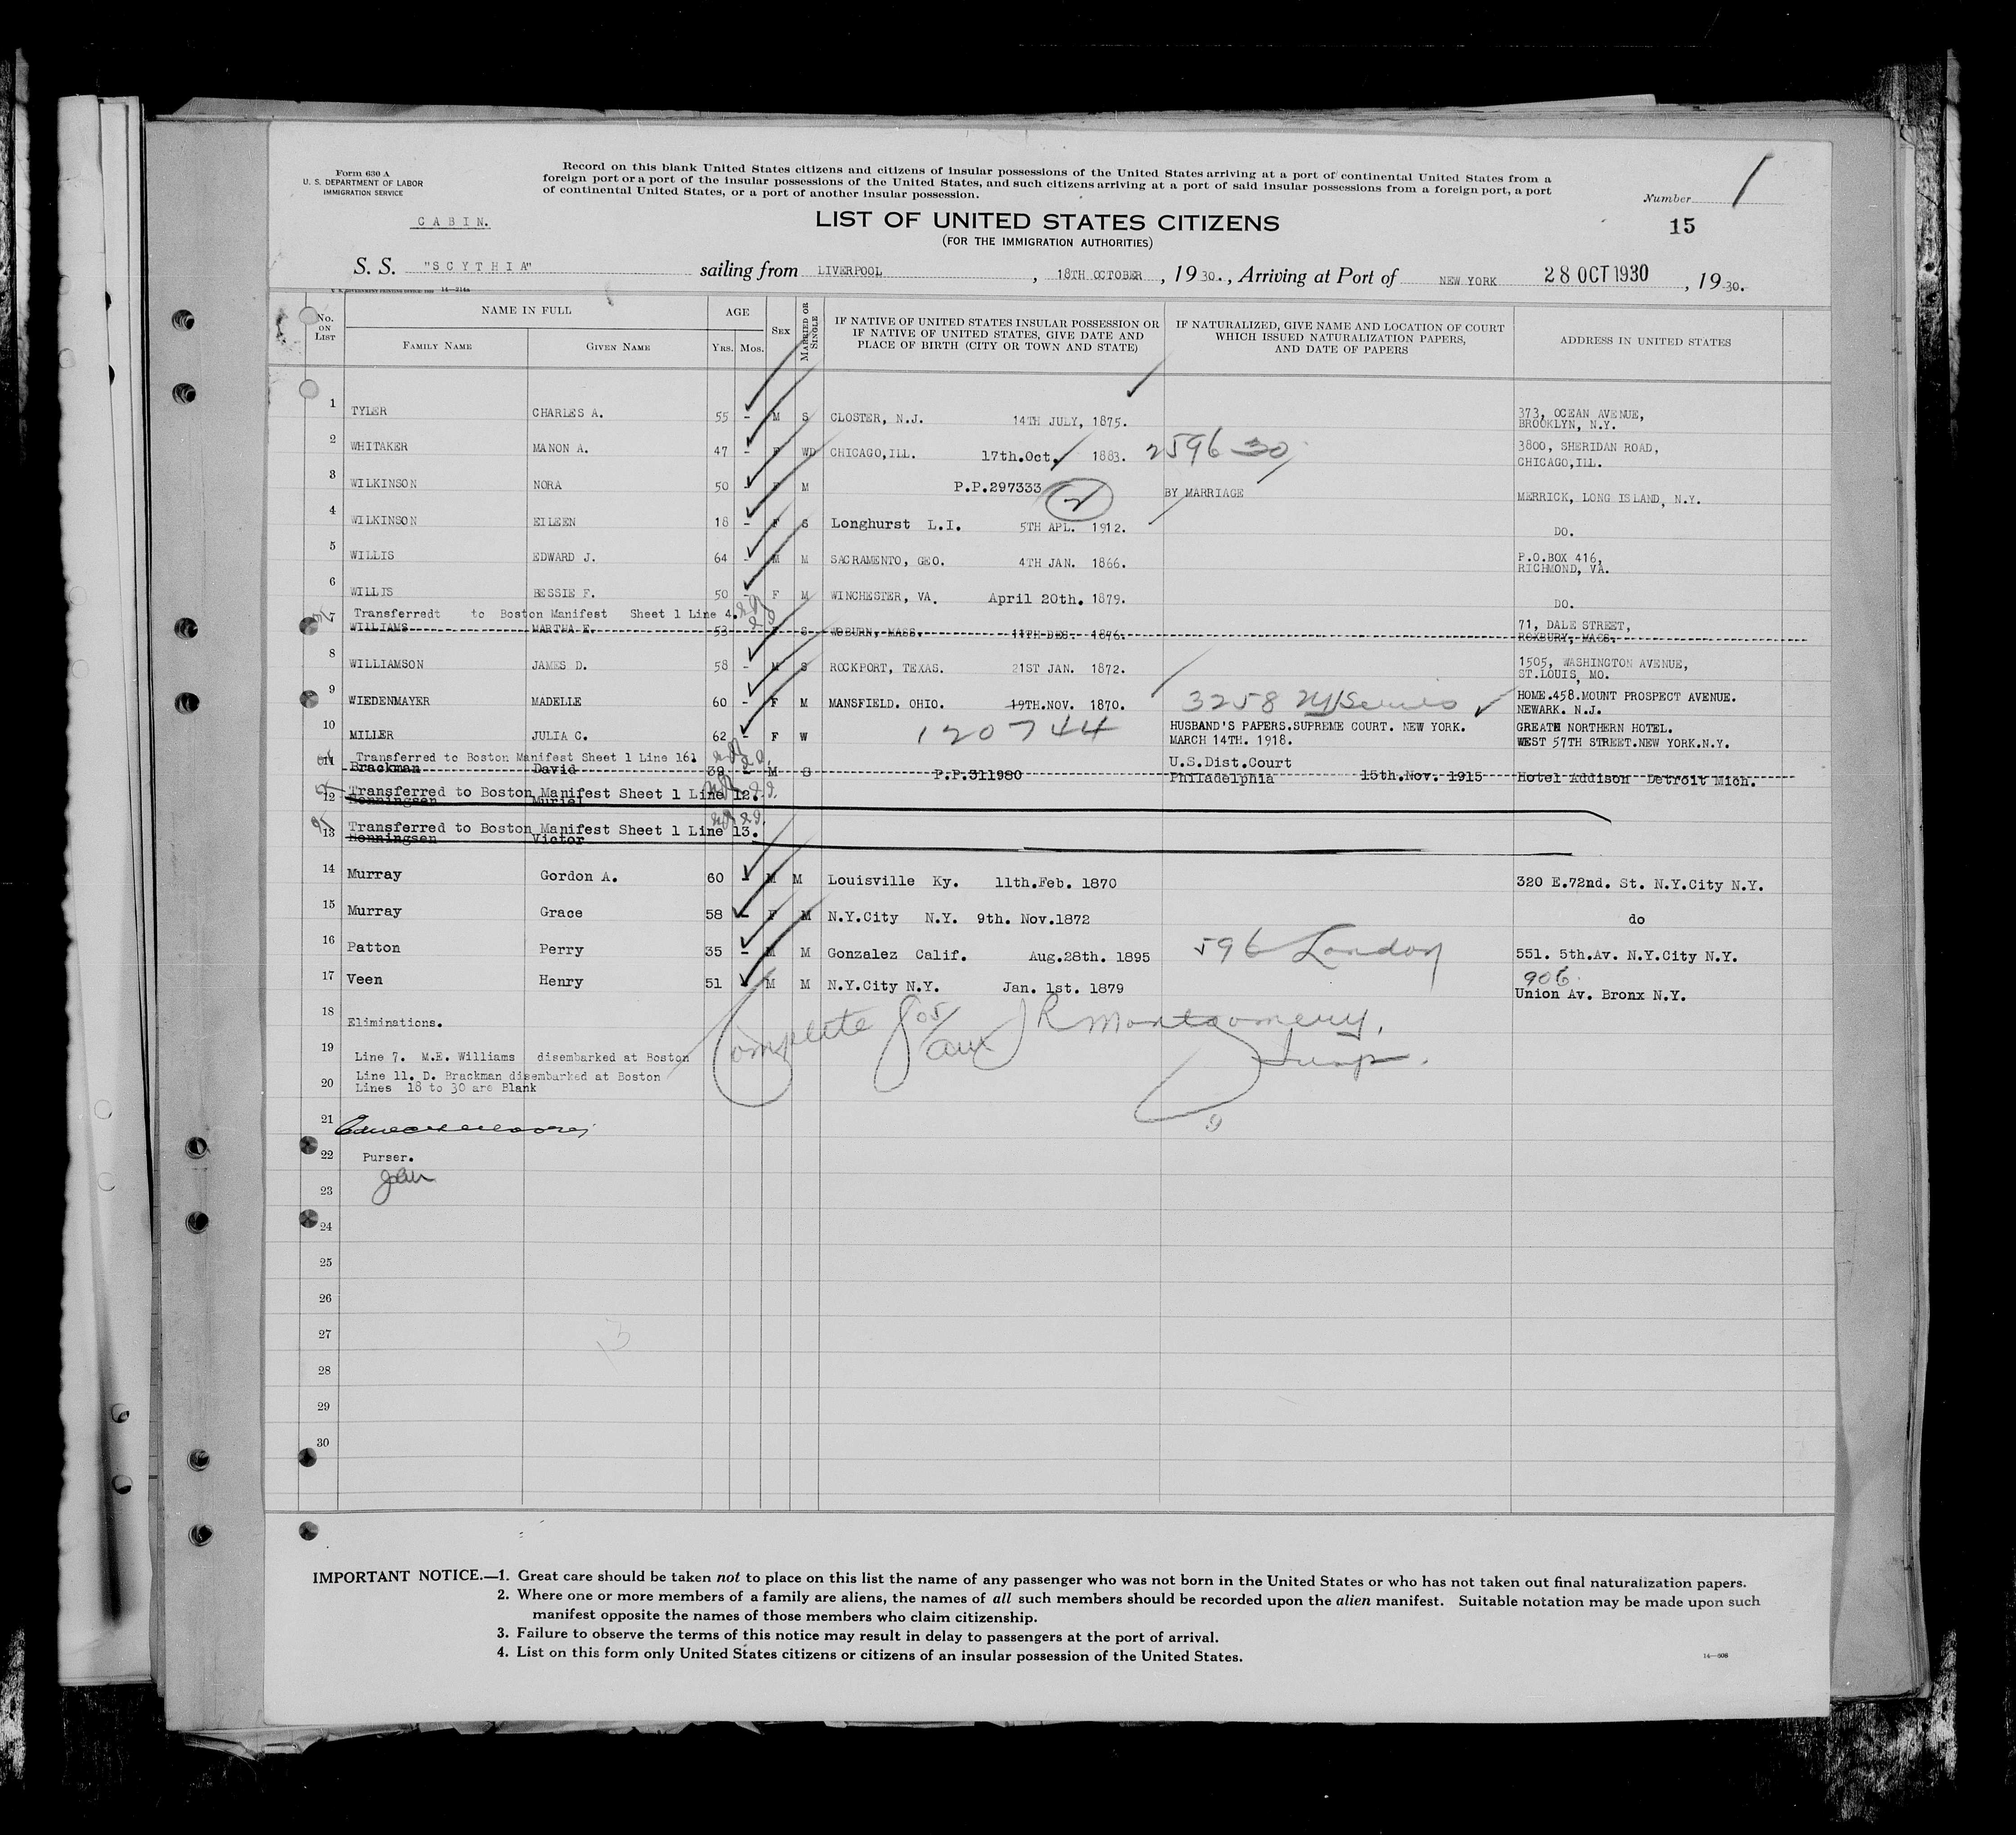 Form 630 A
U. S. DEPARTMENT OF LABOR
IMMIGRATION SERVICE
Record on this blank United States citizens and citizens of insular possessions of the United States arriving at a port of continental United States from a
foreign port or a port of the insular possessions of the United States, and such citizens arriving at a port of said insular possessions from a foreign port, a port
of continental United States, or a port of another insular possession.
Number 1
CABIN.
LIST OF UNITED STATES CITIZENS
15
(FOR THE IMMIGRATION AUTHORITIES)
S. S. "SCYTHIA" sailing from LIVERPOOL , 18TH OCTOBER , 1930. , Arriving at Port of NEW YORK 28 OCT 1930 , 1930.
No. ON LIST NAME IN FULL FAMILY NAME GIVEN NAME AGE YRS. MOS. SEX MARRIED OR SINGLE
IF NATIVE OF UNITED STATES INSULAR POSSESSION OR IF NATIVE OF UNITED STATES, GIVE DATE AND PLACE OF BIRTH (CITY OR TOWN AND STATE)
IF NATURALIZED, GIVE NAME AND LOCATION OF COURT WHICH ISSUED NATURALIZATION PAPERS, AND DATE OF PAPERS
ADDRESS IN UNITED STATES
1 TYLER CHARLES A. 55 - M S CLOSTER, N.J. 14TH JULY, 1875. 373, OCEAN AVENUE, BROOKLYN, N.Y.
2 WHITAKER MANON A. 47 - F WD CHICAGO,ILL. 17th.Oct. 1883. 2596 30 3800, SHERIDAN ROAD, CHICAGO,ILL.
3 WILKINSON NORA 50 - F M P.P.297333 2 BY MARRIAGE MERRICK, LONG ISLAND, N.Y.
4 WILKINSON EILEEN 18 - F S Longhurst L.I. 5TH APL. 1912. DO.
5 WILLIS EDWARD J. 64 - M M SACRAMENTO, GEO. 4TH JAN. 1866. P.O.BOX 416, RICHMOND, VA.
6 WILLIS BESSIE F. 50 - F M WINCHESTER, VA. April 20th. 1879. DO.
Transferredt to Boston Manifest Sheet 1 Line 4.
7 WILLIAMS MARTHA E. 53 F S WOBURN, MASS. 11TH DES. 1876. 71, DALE STREET, ROXBURY, MASS.
8 WILLIAMSON JAMES D. 58 - M S ROCKPORT, TEXAS. 21ST JAN. 1872. 1505, WASHINGTON AVENUE, ST.LOUIS, MO.
9 WIEDENMAYER MADELLE 60 - F M MANSFIELD. OHIO. 19TH.NOV. 1870. 3258 HOME.458.MOUNT PROSPECT AVENUE. NEWARK. N.J.
10 MILLER JULIA C. 62 - F W 120744 HUSBAND'S PAPERS.SUPREME COURT. NEW YORK. MARCH 14TH. 1918. GREATN NORTHERN HOTEL. WEST 57TH STREET.NEW YORK.N.Y.
Transferred to Boston Manifest Sheet 1 Line 16.
11 Brackman David 39 - M S P.P.311980 U.S.Dist.Court Philadelphia 15th.Nov. 1915 Hotel Addison Detroit Mich.
Transferred to Boston Manifest Sheet 1 Line 12.
12 Henningsen Muriel
Transferred to Boston Manifest Sheet 1 Line 13.
13 Henningsen Victor
14 Murray Gordon A. 60 - M M Louisville Ky. 11th.Feb. 1870 320 E.72nd. St. N.Y.City N.Y.
15 Murray Grace 58 - F M N.Y.City N.Y. 9th. Nov.1872 do
16 Patton Perry 35 - M M Gonzalez Calif. Aug.28th. 1895 596 London 551. 5th.Av. N.Y.City N.Y.
17 Veen Henry 51 M M N.Y.City N.Y. Jan. 1st. 1879 906 Union Av. Bronx N.Y.
18 Eliminations. Complete J R Montgomery.
19 Line 7. M.E. Williams disembarked at Boston
Line 11. D. Brackman disembarked at Boston
20 Lines 18 to 30 are Blank
21
22 Purser.
23
24
25
26
27
28
29
30
IMPORTANT NOTICE.—1. Great care should be taken not to place on this list the name of any passenger who was not born in the United States or who has not taken out final naturalization papers.
2. Where one or more members of a family are aliens, the names of all such members should be recorded upon the alien manifest. Suitable notation may be made upon such
manifest opposite the names of those members who claim citizenship.
3. Failure to observe the terms of this notice may result in delay to passengers at the port of arrival.
4. List on this form only United States citizens or citizens of an insular possession of the United States.